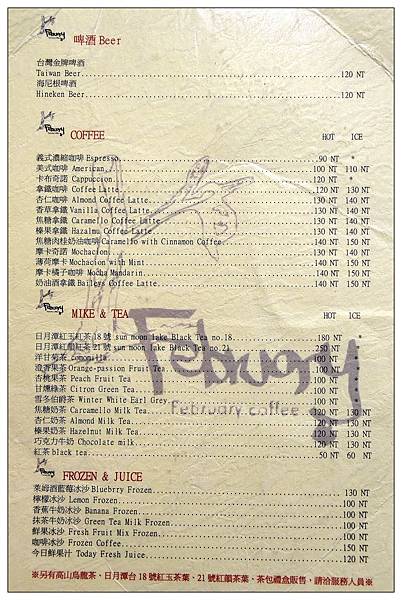 啤酒 Beer
台灣金牌啤酒
Taiwan Beer 120 NT
海尼根啤酒
Hineken Beer 120 NT
COFFEE HOT ICE
義式濃縮咖啡 Espresso 90 NT *
美式咖啡 American 100 NT 110 NT
卡布奇諾 Cappuccion 120 NT *
拿鐵咖啡 Coffee Latte 120 NT 130 NT
杏仁咖啡 Almond Coffee Latte 130 NT 140 NT
香草拿鐵 Vanilla Coffee Latte 130 NT 140 NT
焦糖拿鐵 Caramello Coffee Latte 130 NT 140 NT
榛果拿鐵 Hazalmu Coffee Latte 130 NT 140 NT
焦糖肉桂奶油咖啡 Caramelfo with Cinnamon Coffee 140 NT 150 NT
摩卡奇諾 Mochacion 130 NT 140 NT
薄荷摩卡 Mochacion with Mint 140 NT 150 NT
摩卡橘子咖啡 Mocha Mandarin 140 NT 150 NT
奶油酒拿鐵 Baileys Coffee Latte 140 NT 150 NT
MIKE & TEA HOT ICE
日月潭紅玉紅茶 18 號 sun moon lake Black Tea no.18 180 NT
日月潭紅韻紅茶 21 號 sun moon lake Black Tea no.21 250 NT
洋甘菊茶
澄香果茶 Orange-passion Fruit Tea
杏桃果茶 Peach Fruit Tea
甘燻綠茶 Citron Green Tea
雪冬伯爵茶 Winter White Earl Grey
焦糖奶茶 Carcamello Milk Tea 120 NT 130 NT
杏仁奶茶 Almond Milk Tea 120 NT 130 NT
榛果奶茶 Hazelnut Milk Tea 120 NT 130 NT
巧克力牛奶 Chocolate milk 120 NT 130 NT
紅茶 black tea 50 NT 60 NT
February
February coffee
FROZEN & JUICE
萊姆酒藍莓冰沙 Bluebrry Frozen 130 NT
檸檬冰沙 Lemon Frozen 100 NT
香蕉牛奶冰沙 Banana Frozen 100 NT
抹茶牛奶冰沙 Green Tea Milk Frozen 100 NT
鮮果冰沙 Fresh Fruit Mix Frozen 100 NT
咖啡冰沙 Frozen Coffee 150 NT
今日鮮果汁 Today Fresh Juice 120 NT
※另有高山烏龍茶、日月潭台18號紅玉茶葉、21號紅韻茶葉、茶包禮盒販售，請洽服務人員※